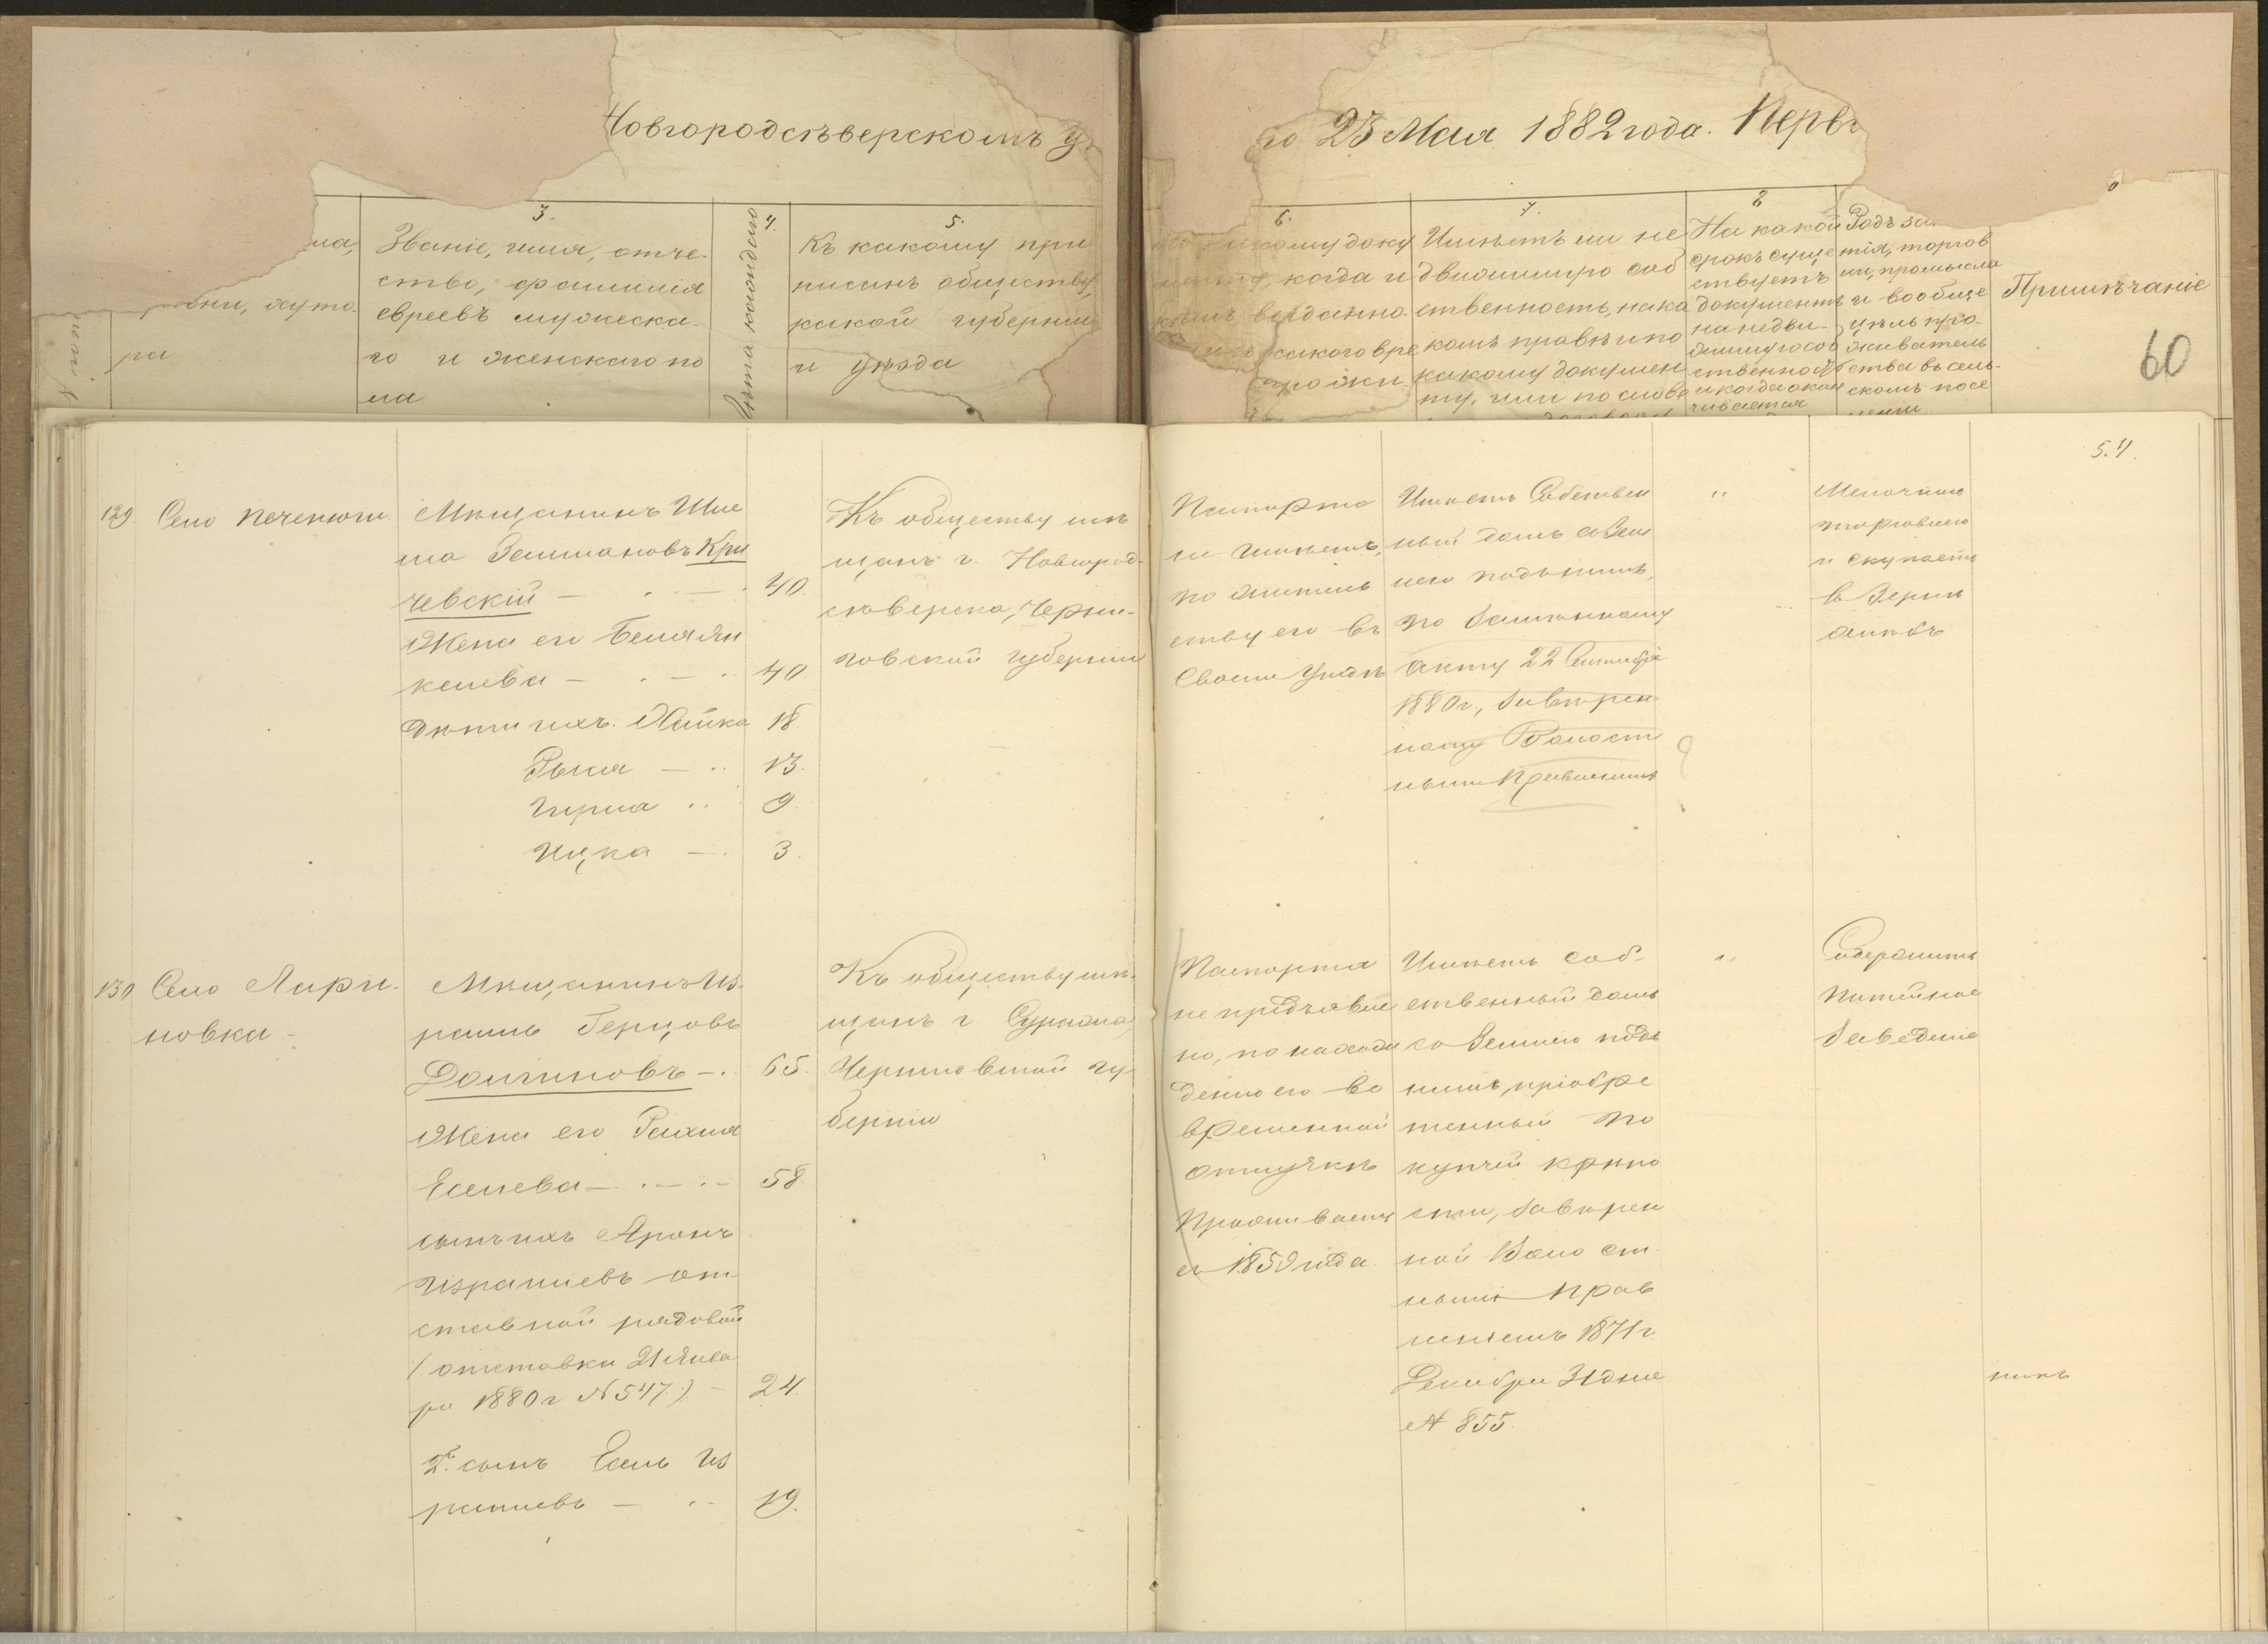 Новгородсѣверскомъ У
го 23 Мая 1882 года. Перв
3.
Званіе, имя, отче-
ство, фамилія
евреевъ мужеска-
го и женскаго по
ла
4.
Лѣта каждаго
5.
Къ какому при
писанъ обществу,
какой губерніи
и уѣзда
6.
какому доку
когда и
какого вре
7.
Имѣетъ ли не
движимую соб
ственность, на ка
комъ правѣ и по
какому докумен
ту, или по слове
8
На какой
срокъ суще
ствуетъ
документъ
на недви-
жимую соб
ственность
и когда окан
чивается
Родъ за
тія, торгов
ли, промысла
и вообще
цѣль про-
живатель
ства въ сель-
скомъ посе
леніи
Примѣчаніе
60
54.
129. Село Печенюги
Мѣщанинъ Шле
ма Залмановъ Кри
чевскій — 40.
Жена его Беля Ян
келева — 40.
Дѣти ихъ: Хайка 18
Рыся — 13.
Гирша 9
Ицка — 3.
Къ обществу мѣ
щанъ г. Новгород-
сѣверска, Черни-
говской губерніи
Паспорта
не имѣетъ,
по житель
ству его въ
своемъ Уѣздѣ
Имѣетъ Собствен
ный домъ со Зем
лею подъ нимъ,
по домашнему
акту 22 Сентября
1880 г., засвидѣ
Волост
нымъ Правленіемъ
"
Мелочною
торговлею
и скупаетъ
130 Село Лари-
новка —
Мѣщанинъ Из-
раиль Герцовъ
Долгиновъ — 65.
Жена его Рахля
Еселева — 58
сынъ ихъ Аронъ
Израилевъ от-
ставной рядовой
(отставки 21 Янва
ря 1880 г. № 547.) — 24.
2й сынъ Есель Из
раилевъ — 19.
Къ обществу мѣ-
щанъ г. Суража,
Черниговской гу-
берніи
Паспорта
не предъявле
но, по нахож
денію его во
временной
отлучкѣ
Проживаетъ
съ 1859 года.
Имѣетъ соб-
ственный домъ
со Землею подъ
нимъ, пріобре
тенный по
купчей крѣпо
сти, заверен
ной Волост-
нымъ Прав
леніемъ 1871 г.
Декабря 31 дня
№ 855.
"
Содержитъ
Питейное
Заведеніе